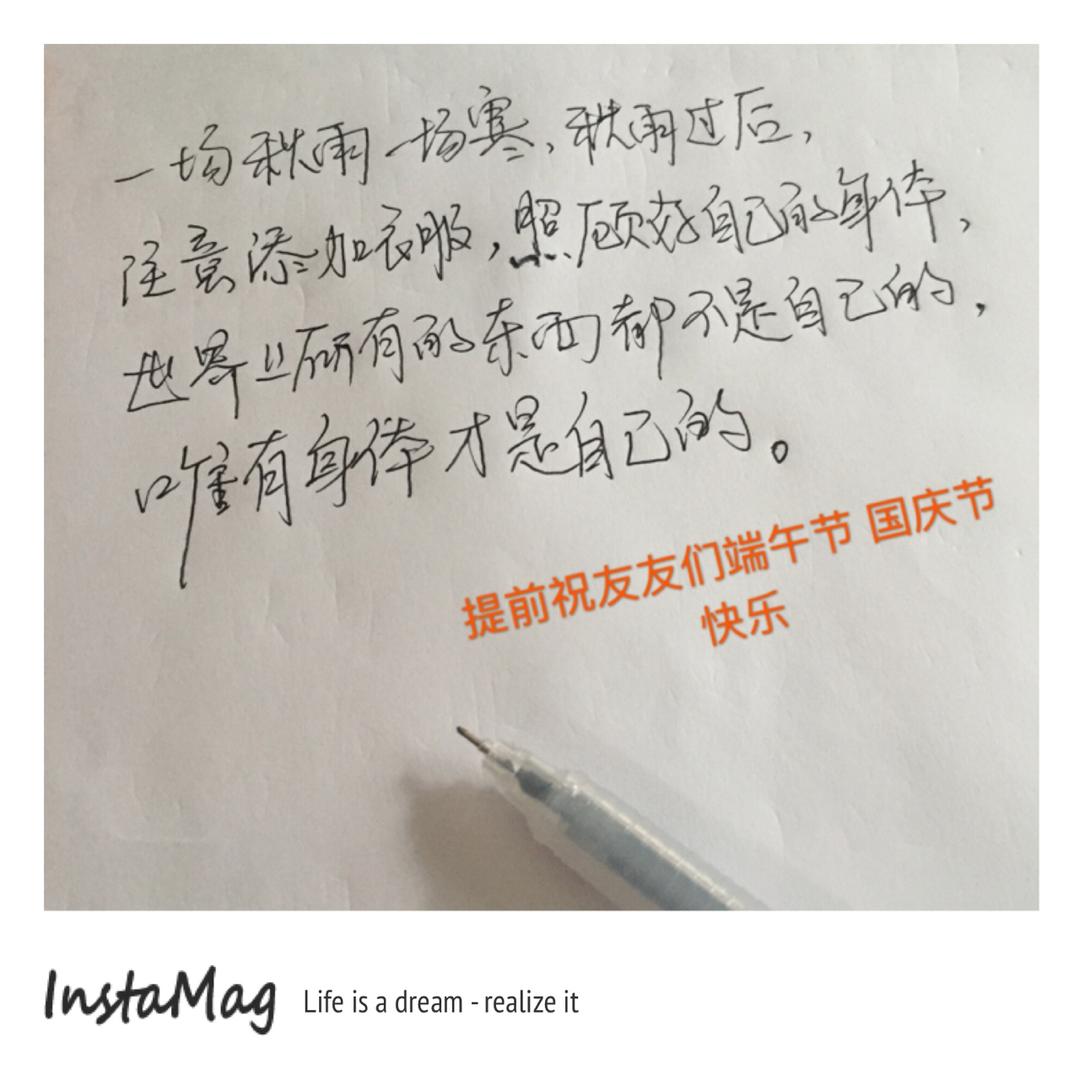 一场秋雨一场寒,秋雨过后,
注意添加衣服,照顾好自己的身体,
世界上所有的东西都不是自己的,
唯有身体才是自己的。
提前祝友友们端午节 国庆节
快乐
InstaMag Life is a dream - realize it